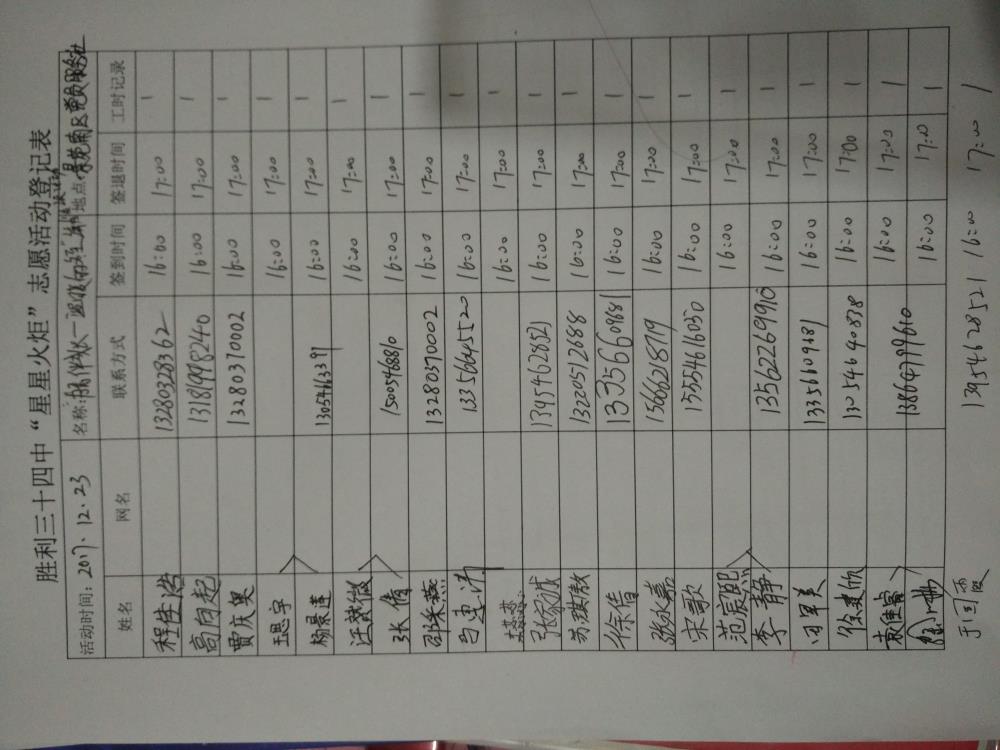 胜利三十四中“星星火炬”志愿活动登记表
活动时间: 2017.12.23 名称: 地点
姓名 网名 联系方式 签到时间 签退时间 工时记录
程佳浩 13280328362 16:00 17:00 1
高向起 13181998240 16:00 17:00 1
贾庆奥 13280370002 16:00 17:00 1
王思宇 16:00 17:00 1
杨景莲 1305463391 16:00 17:00 1
汪赞俊 16:00 17:00 1
张倩 1500546886 16:00 17:00 1
邵采燕 13280370002 16:00 17:00 1
13356645520 16:00 17:00 1
16:00 17:00 1
张家诚 13954628521 16:00 17:00 1
苏琪敖 13220572688 16:00 17:00 1
徐倩 13356609681 16:00 17:00 1
张永嘉 15666287819 16:00 17:00 1
宋歌 15554616030 16:00 17:00 1
范宸熙 16:00 17:00 1
李静 13562269910 16:00 17:00 1
田军美 13356609681 16:00 17:00 1
徐建欣 13054640838 16:00 17:00 1
袁佳睿 16:00 17:00 1
13864799610 16:00 17:00 1
于国霞 13954628521 16:00 17:00 1